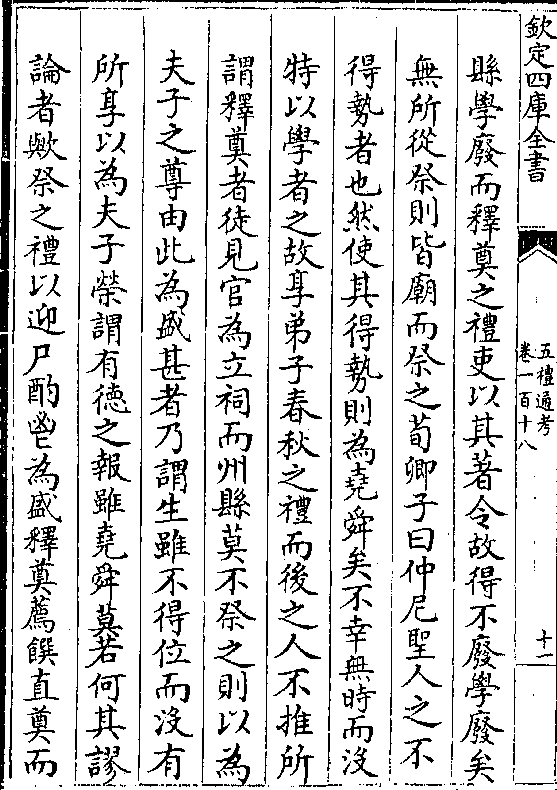 欽定四庫全書
五禮通考
卷一百十八
十一
縣學廢而釋奠之禮吏以其著令故得不廢學廢矣
無所從祭則皆廟而祭之荀卿子曰仲尼聖人之不
得勢者也然使其得勢則為堯舜矣不幸無時而沒
特以學者之故享弟子春秋之禮而後之人不推所
謂釋奠者徒見官為立祠而州縣莫不祭之則以為
夫子之尊由此為盛甚者乃謂生雖不得位而沒有
所享以為夫子榮謂有德之報雖堯舜莫若何其謬
論者歟祭之禮以迎尸酌鬯為盛釋奠薦饌直奠而